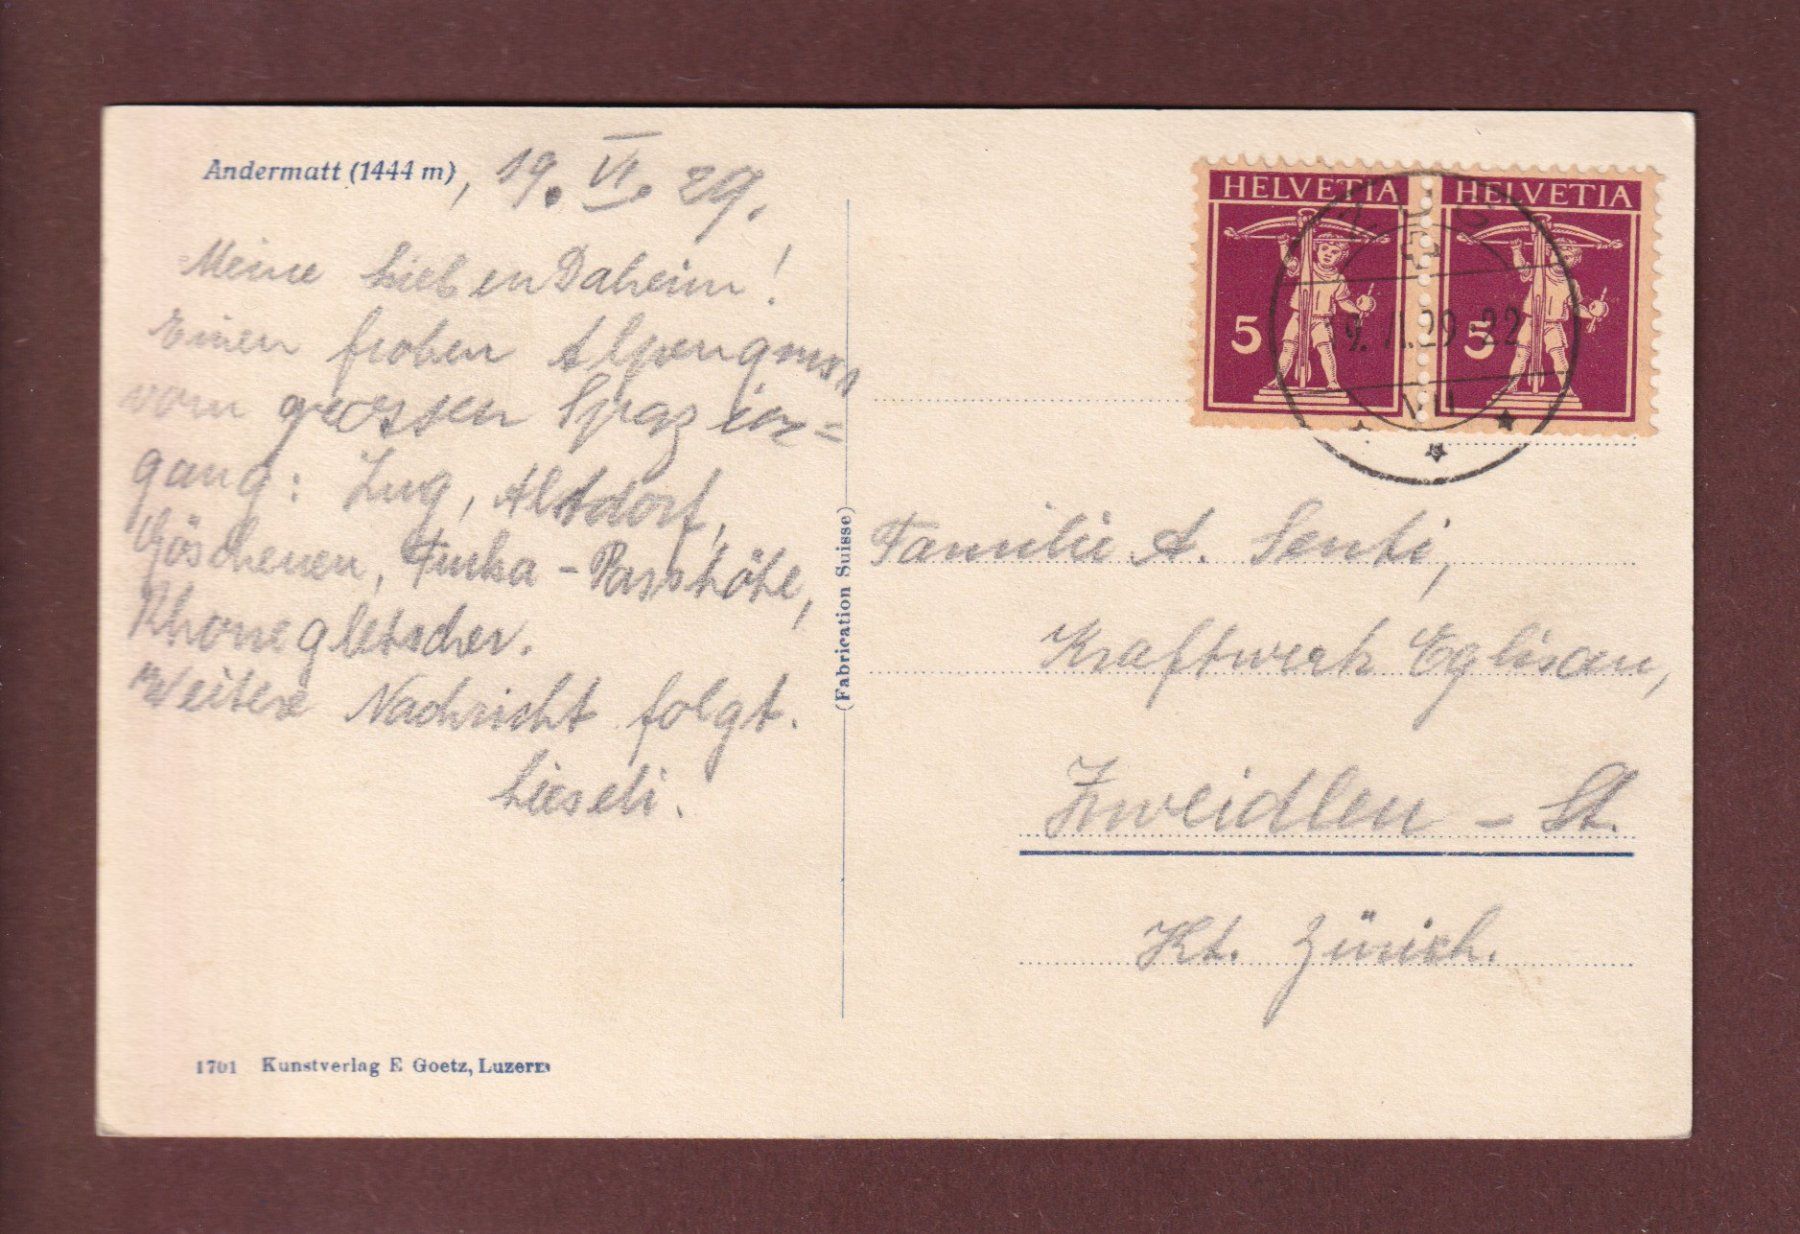 Andermatt (1444 m), 19. VI. 29.
Meine Lieben Daheim!
Einen frohen Alpengruss
vom grossen Spazier=
gang: Zug, Altdorf,
Göschenen, Furka-Passhöhe,
Rhonegletscher.
Weitere Nachricht folgt.
Lieseli.
1701 Kunstverlag E Goetz, Luzern
(Fabrication Suisse)
HELVETIA
5
HELVETIA
5
19. VI. 29 - 22
Familie A. Senti,
Kraftwerk Eglisau,
Zweidlen - St.
Kt. Zürich.